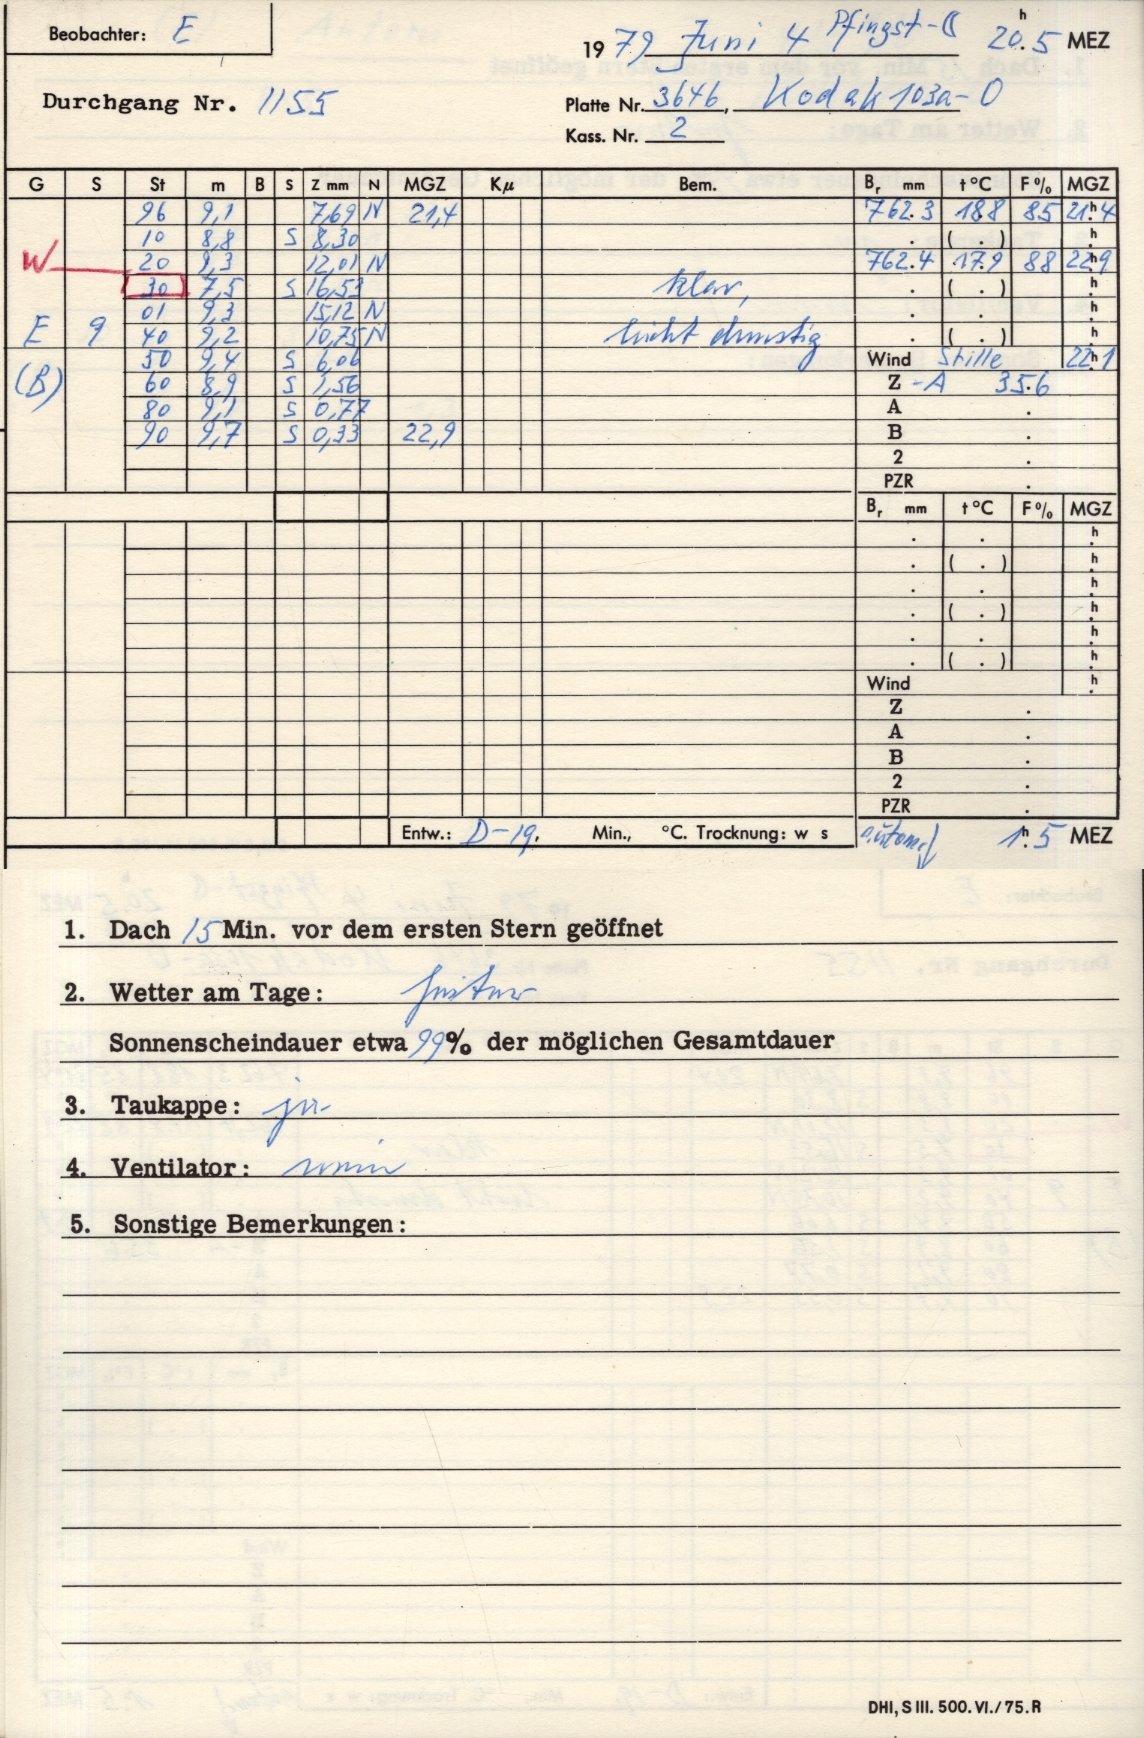 Beobachter: E
1979 Juni 4 Pfingst- 20h.5 MEZ
Durchgang Nr. 1155
Platte Nr. 3646, Kodak 103a-O
Kass. Nr. 2
G S St m B S Z mm N MGZ Kµ Bem. Br mm t°C F% MGZ
96 9,1 7,69 N 21,4 762.3 18.8 85 21h4
10 8,8 S 8,30 . ( . ) h
W 20 9,3 12,01 N 762.4 17.9 88 22h9
30 7,5 S 16,53 klar, . ( . ) h
01 9,3 15,12 N . . h
E 9 40 9,2 10,75 N leicht dunstig . ( . ) h
(B) 50 9,4 S 6,06 Wind Stille 22h1
60 8,9 S 1,56 Z -A 35.6
80 9,1 S 0,77 A .
90 9,7 S 0,33 22,9 B .
2 .
PZR .
Br mm t°C F% MGZ
. . h
. ( . ) h
. . h
. ( . ) h
. . h
. ( . ) h
Wind h
Z .
A .
B .
2 .
PZR .
Entw.: D-19. Min., °C. Trocknung: w s 1h.5 MEZ
1. Dach 15 Min. vor dem ersten Stern geöffnet
2. Wetter am Tage: heiter
Sonnenscheindauer etwa 99% der möglichen Gesamtdauer
3. Taukappe: ja
4. Ventilator: nein
5. Sonstige Bemerkungen:
DHI, S III. 500. VI./75. R